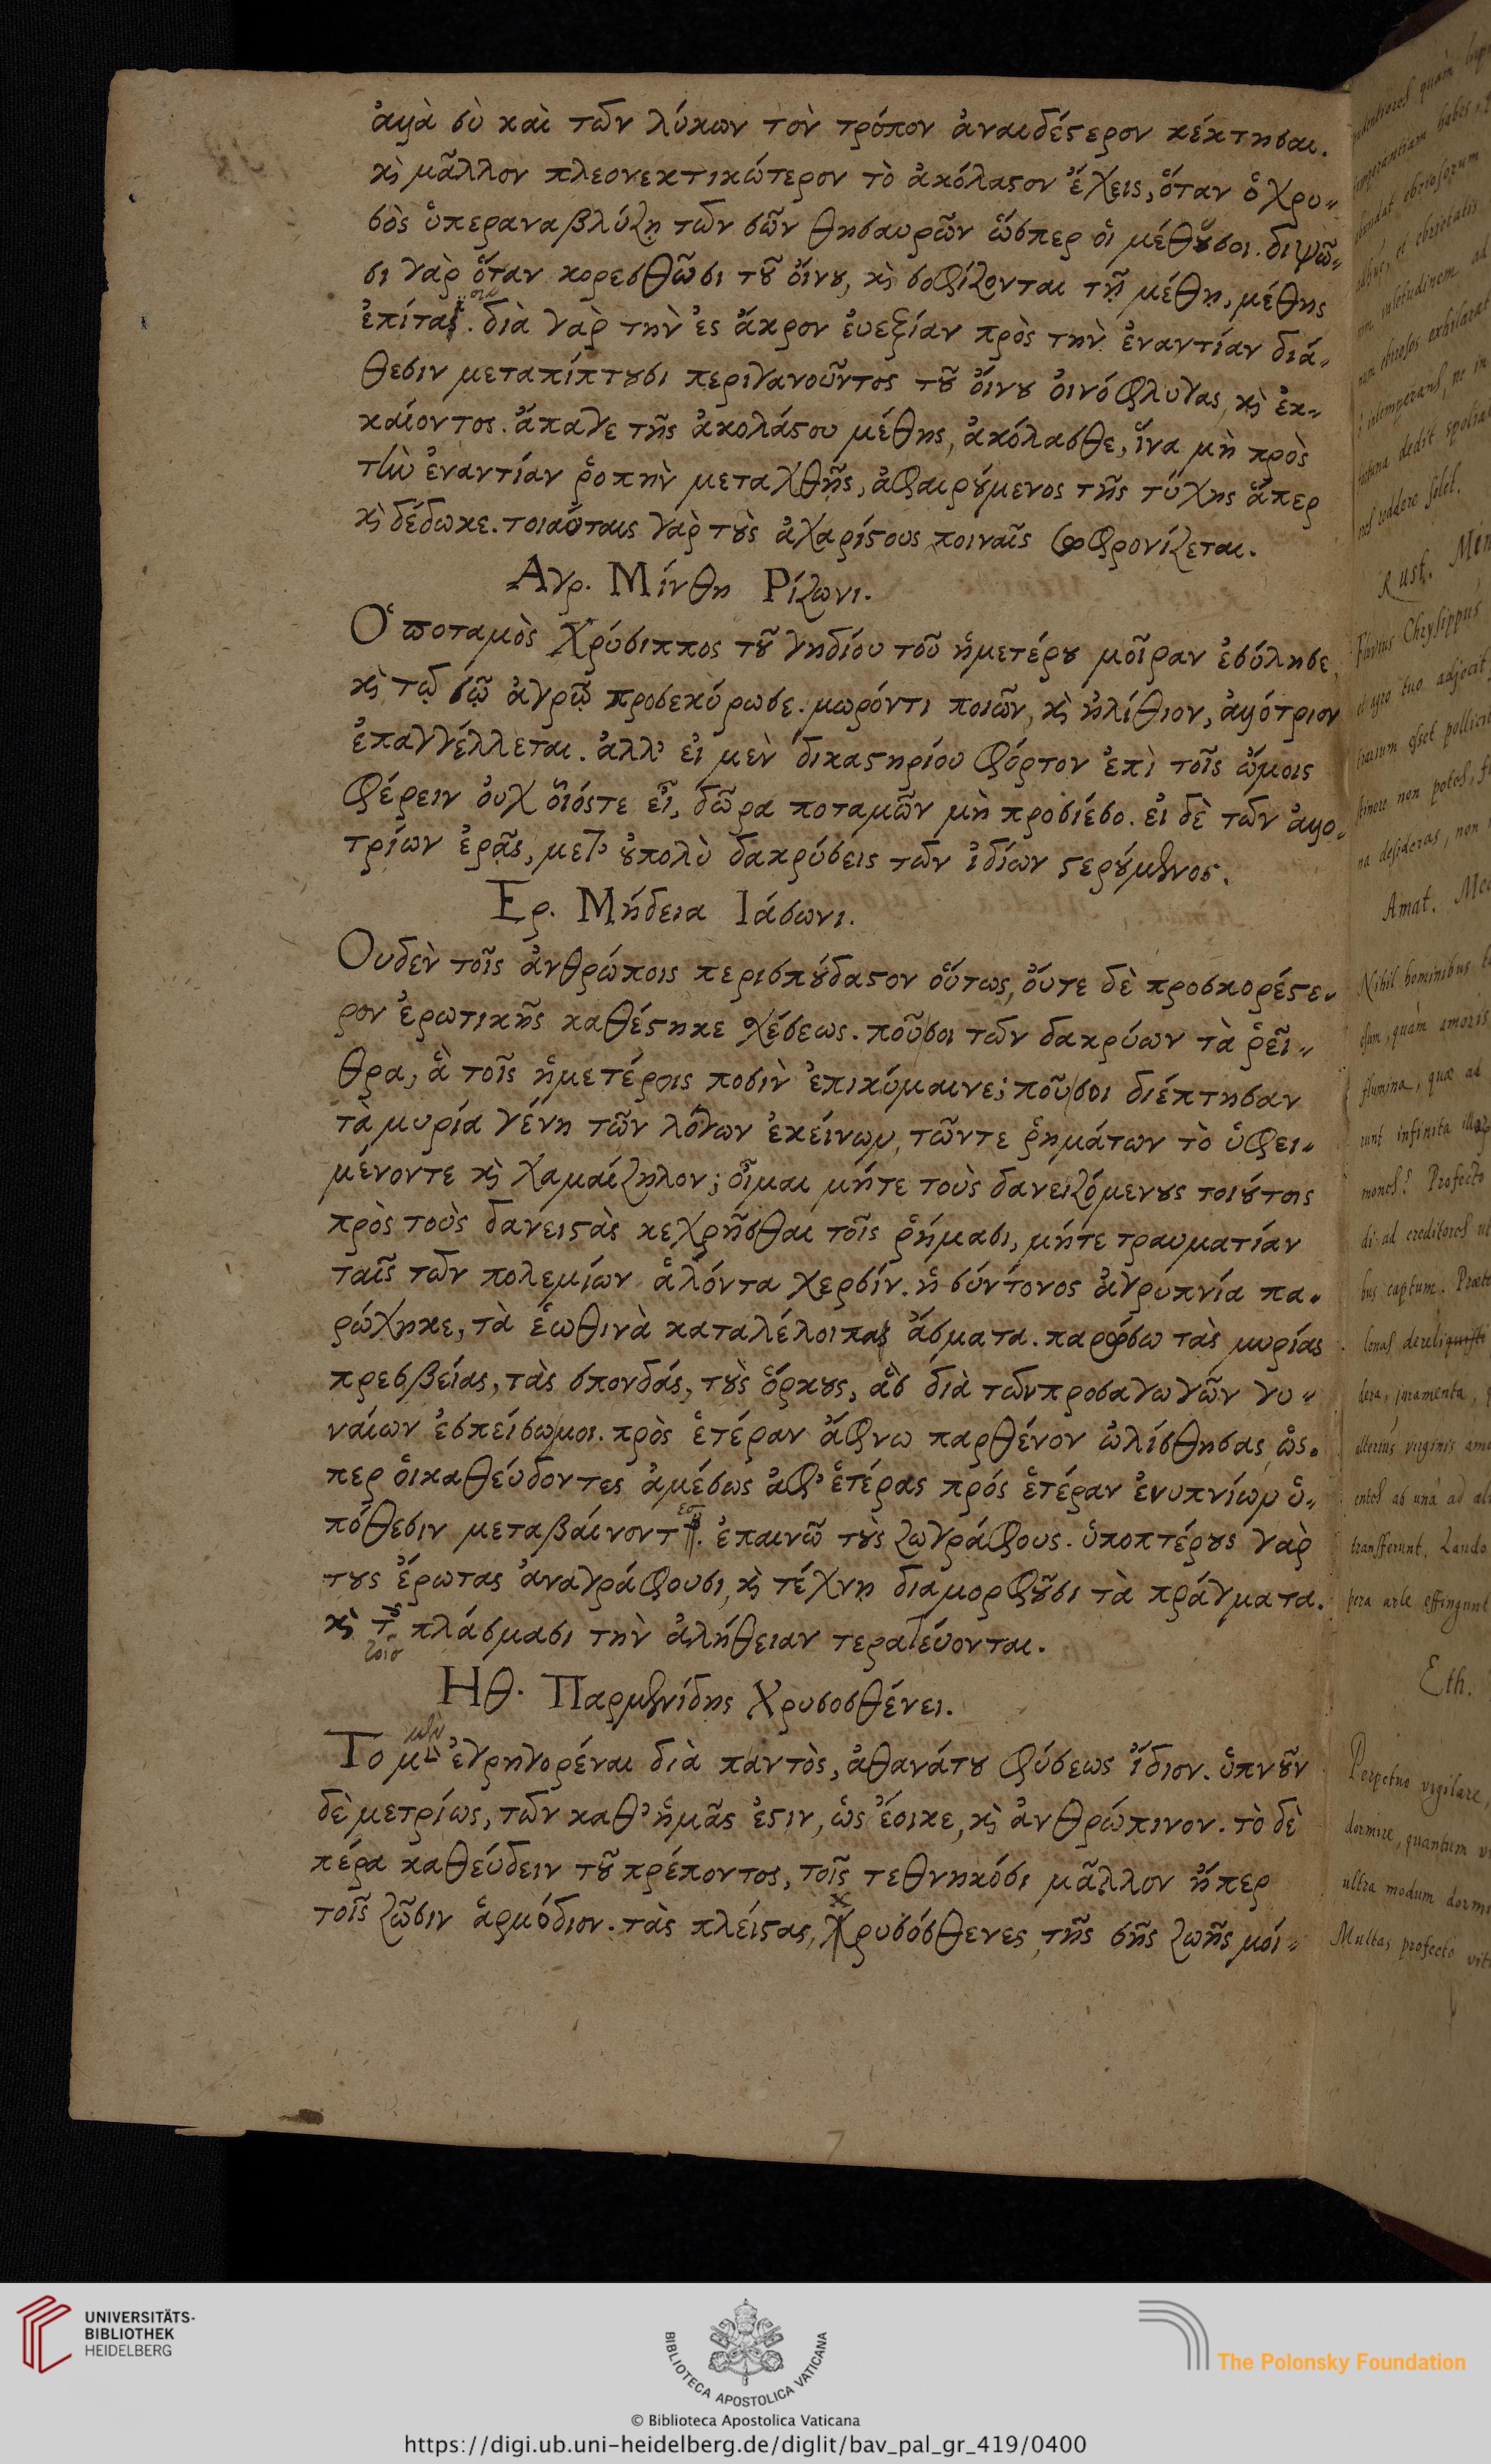 ἀλλὰ σὺ καὶ τῶν λύκων τὸν τρόπον ἀναιδέστερον κέκτησαι.
κὶ μᾶλλον πλεονεκτικώτερον τὸ ἀκόλαστον ἔχεις, ὅταν ὁ χρυ-
σὸς ὑπεραναβλύζῃ τῶν σῶν θησαυρῶν ὥσπερ οἱ μέθυσοι. διψῶ-
σι γὰρ ὅταν κορεσθῶσι τοῦ οἴνου, κὶ σοφίζονται τῇ μέθῃ, μέθης
ἐπίτασιν. διὰ γὰρ τὴν ἐς ἄκρον ἐυεξίαν πρὸς τὴν ἐναντίαν διά-
θεσιν μεταπίπτουσι περιγανοῦντος τοῦ οἴνου οἰνόφλυγας, κὶ ἐκ-
καίοντος. ἄπαγε τῆς ἀκολάστου μέθης, ἀκόλασθε, ἵνα μὴ πρὸς
τὴν ἐναντίαν ῥοπὴν μεταχθῇς, ἀφαιρούμενος τῆς τύχης ἅπερ
κὶ δέδωκε. τοιαύταις γὰρ τοὺς ἀχαρίστους ποιναῖς σωφρονίζεται.
Αγρ. Μίνθη Ρίζωνι.
Ὁ ποταμὸς Χρύσιππος τοῦ γηδίου τοῦ ἡμετέρου μοῖραν ἐσύλησε,
κὶ τῷ σῷ ἀγρῷ προσεκύρωσε. μωρόντι ποιῶν, κὶ ἠλίθιον, ἀλλότριον
ἐπαγγέλλεται. ἀλλ' εἰ μὲν δικαστηρίου φόρτον ἐπὶ τοῖς ὤμοις
φέρειν οὐχ οἷόστε εἶ, δῶρα ποταμῶν μὴ προσίεσο. εἰ δὲ τῶν ἀλλο-
τρίων ἐρᾷς, μετ' οὐπολὺ δακρύσεις τῶν ἰδίων στερούμενος.
Ερ. Μήδεια Ιάσωνι.
Ουδὲν τοῖς ἀνθρώποις περισπούδαστον οὕτως, οὔτε δὲ προσκορέστε-
ρον ἐρωτικῆς καθέστηκε χέσεως. ποῦ σοι τῶν δακρύων τὰ ῥεῖ-
θρα, ἃ τοῖς ἡμετέροις ποσὶν ἐπικύμαινε; ποῦ σοι διέπτησαν
τὰ μυρία γένη τῶν λόγων ἐκείνων, τῶντε ῥημάτων τὸ ὑφει-
μένοντε κὶ χαμαίζηλον; οἶμαι μήτε τοὺς δανειζόμενους τοιούτοις
πρὸς τοὺς δανειστὰς κεχρῆσθαι τοῖς ῥήμασι, μήτε τραυματίαν
ταῖς τῶν πολεμίων ἁλόντα χερσίν. ἡ σύντονος ἀγρυπνία πα-
ρώχηκε, τὰ ἑωθινὰ καταλέλοιπας ἄσματα. παρήσω τὰς μυρίας
πρεσβείας, τὰς σπονδάς, τοὺς ὅρκους, ἃς διὰ τῶνπροσαγωγῶν γυ-
ναίων ἐσπείσω μοι. πρὸς ἑτέραν ἄφνω παρθένον ὠλίσθησας, ὥς-
περ οἱ καθεύδοντες ἀμέσως ἀφ' ἑτέρας πρός ἑτέραν ἐνυπνίων ὑ-
πόθεσιν μεταβαίνοντες. ἐπαινῶ τοὺς ζωγράφους. ὑποπτέρους γὰρ
τους ἔρωτας ἀναγράφουσι, κὶ τέχνῃ διαμορφοῦσι τὰ πράγματα.
κὶ τοῖς πλάσμασι τὴν ἀλήθειαν τερατεύονται.
Ηθ. Παρμενίδης Χρυσοσθένει.
Το μὲν ἐγρηγορέναι διὰ παντὸς, ἀθανάτου φύσεως ἴδιον. ὑπνοῦν
δὲ μετρίως, τῶν καθ' ἡμᾶς ἐστιν, ὡς ἔοικε, κὶ ἀνθρώπινον. τὸ δὲ
πέρα καθεύδειν τοῦ πρέποντος, τοῖς τεθνηκόσι μᾶλλον ἤπερ
τοῖς ζῶσιν ἁρμόδιον. τὰς πλείστας, Χρυσόσθενες, τῆς σῆς ζωῆς μοί-
Rust. Min
Fluvius Chrysippus
Amat. Me
Nihil hominibus
flumina, quæ ad
Eth.
Perpetuo vigilare,
dormire, quantum
ultra modum dormi
Multas profecto vit
UNIVERSITÄTS-
BIBLIOTHEK
HEIDELBERG
BIBLIOTECA APOSTOLICA VATICANA
The Polonsky Foundation
© Biblioteca Apostolica Vaticana
https://digi.ub.uni-heidelberg.de/diglit/bav_pal_gr_419/0400